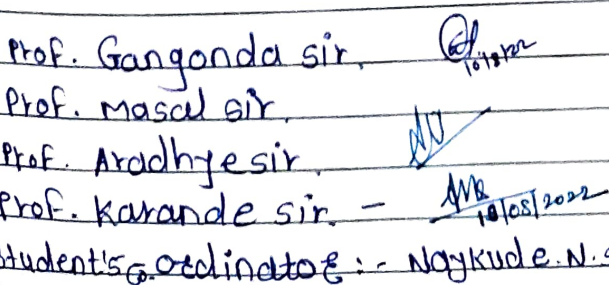 Prof. Gangonda sir. 10/8/22
Prof. Masal sir.
Prof. Aradhye sir.
Prof. Karande sir. - 10/08/2022
Student's Co.ordinator :- Naykude. N. S